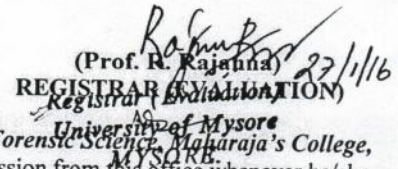 (Prof. R. Rajanna)
27/1/16
REGISTRAR (EVALUATION)
Registrar (Evaluation)
University of Mysore
Forensic Science, Maharaja's College,
MYSORE.
ission from this office whenever he/she